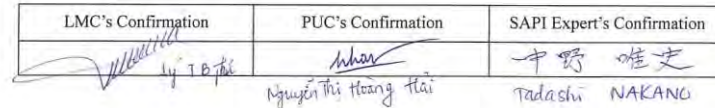 LMC's Confirmation PUC's Confirmation SAPI Expert's Confirmation
Lý T B 中野
Nguyễn Thị Hoàng Hải Tadashi NAKANO